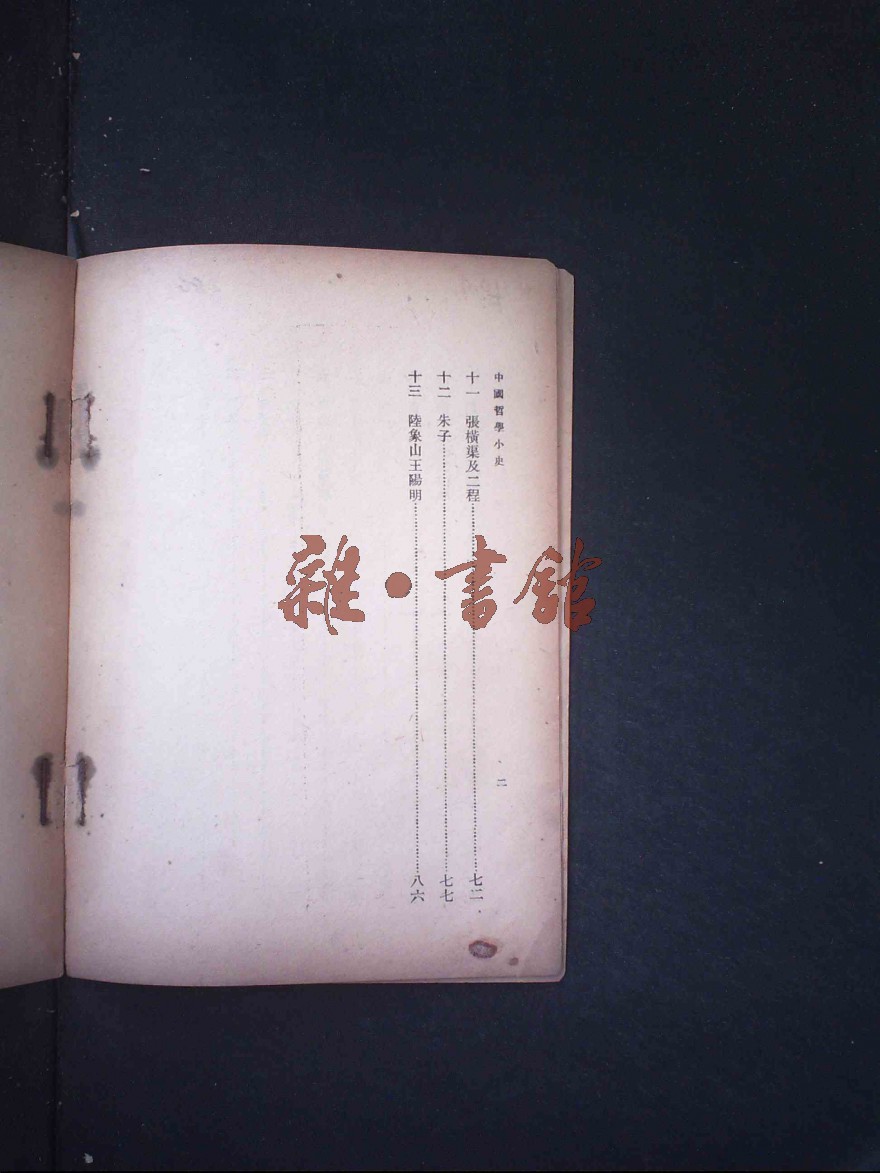 中國哲學小史
二
十一 張橫渠及二程……七二
十二 朱子……七七
十三 陸象山王陽明……八六
雜·書館